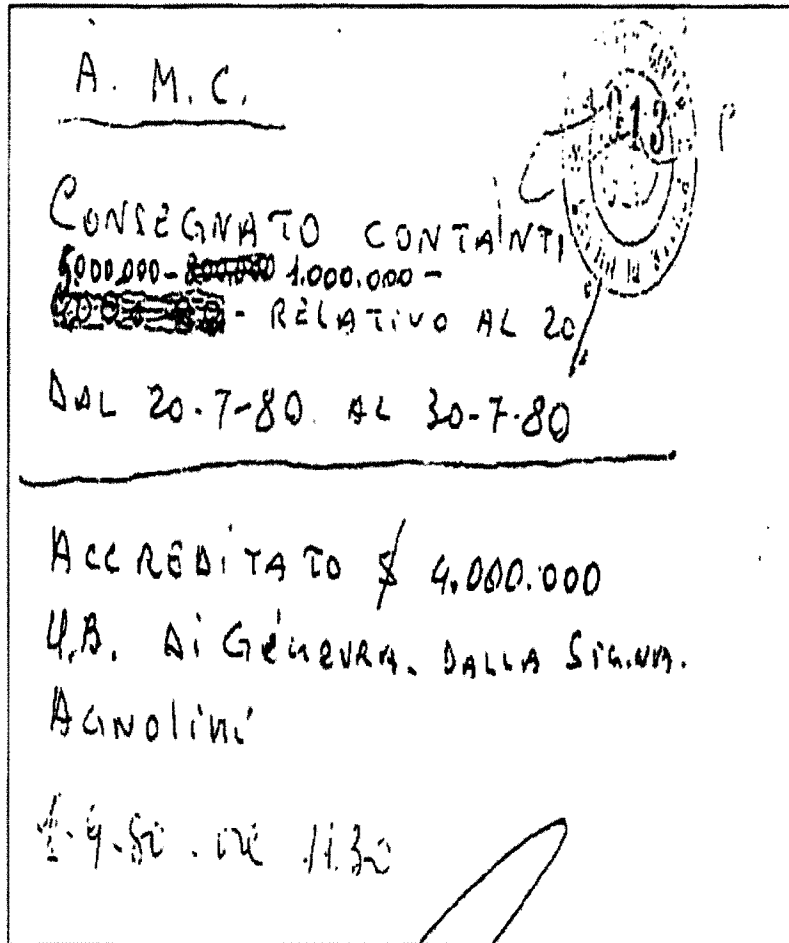 A. M. C.
013
CONSEGNATO CONTAINTI
5.000.000 - 1.000.000 -
- RELATIVO AL 20
DAL 20-7-80. AL 30-7-80
ACCREDITATO $ 4.000.000
U.B. DI GENEVRA. DALLA SIG.NA.
AGNOLINI
11.30